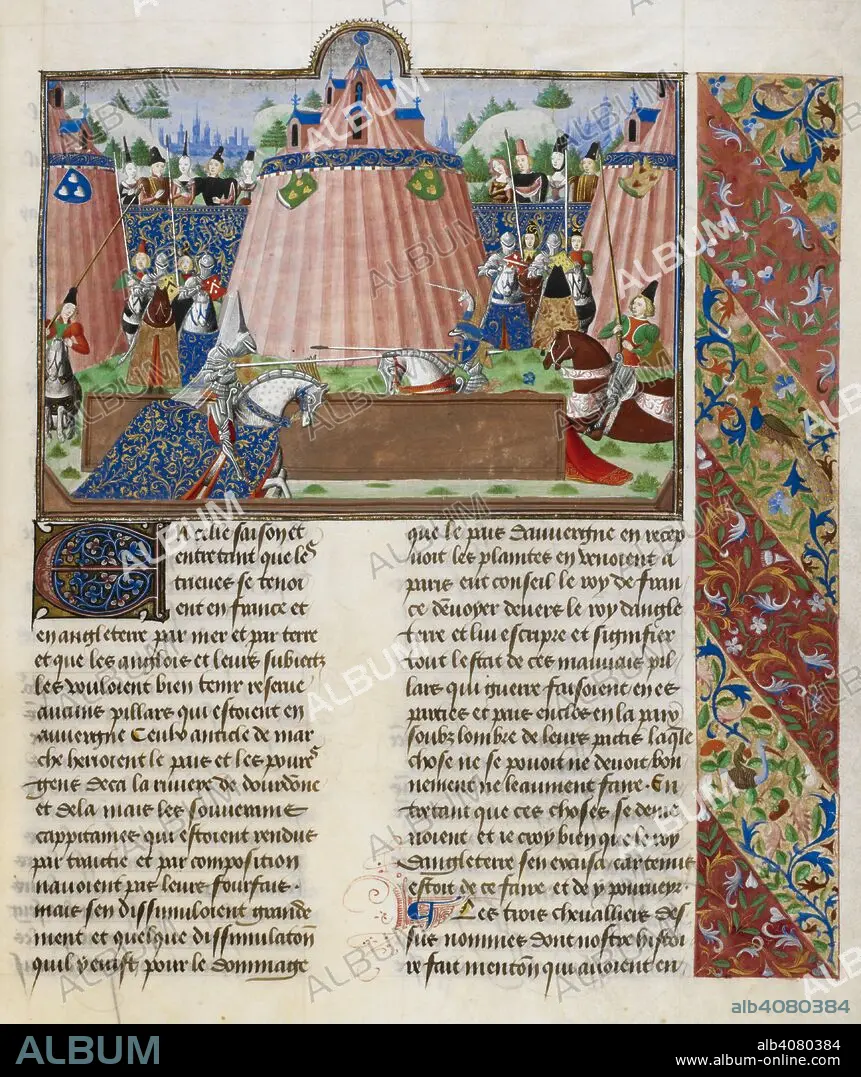 En celle saison et
entretant que les
treues se tenoi
ent en france et
en angleterre par mer et par terre
et que les anglois et leurs subietz
les vouloient bien tenir reserue
aucuns pillars qui estoient en
auuergne Ceulx
che herioient le pais et les poures
gens deca la riuiere de dourdonne
et dela mais les souuerains
cappitaines qui estoient rendus
par traictie et par composition
nauoient pas leurs
mais sen dissimuloient grande
ment et quelque dissimulation
quil y euist pour le dommage
que le pais dauuergne en recep
uoit les plaintes en venoient a
paris eut conseil le roy de fran
ce denvoyer deuers le roy dangle
terre et lui escripre et signifier
tout lestat de ces mauuais pil
lars qui guerre faisoient en es
parties et pais enclos en la paix
soubz lombre de leurs pactis laqle
chose ne se pouoit ne deuoit bon
nement ne leaument faire. En
tretant que ces choses se deme
noient et ie croy bien que le roy
dangleterre sen excusa car tenus
estoit de ce faire et de y pourueyr.
Les trois cheualliers des
sus nommes dont nostre histoi
re fait mention qui auoient en
ALBUM
alb4080384
ALBUM
alb4080384
www.album-online.com